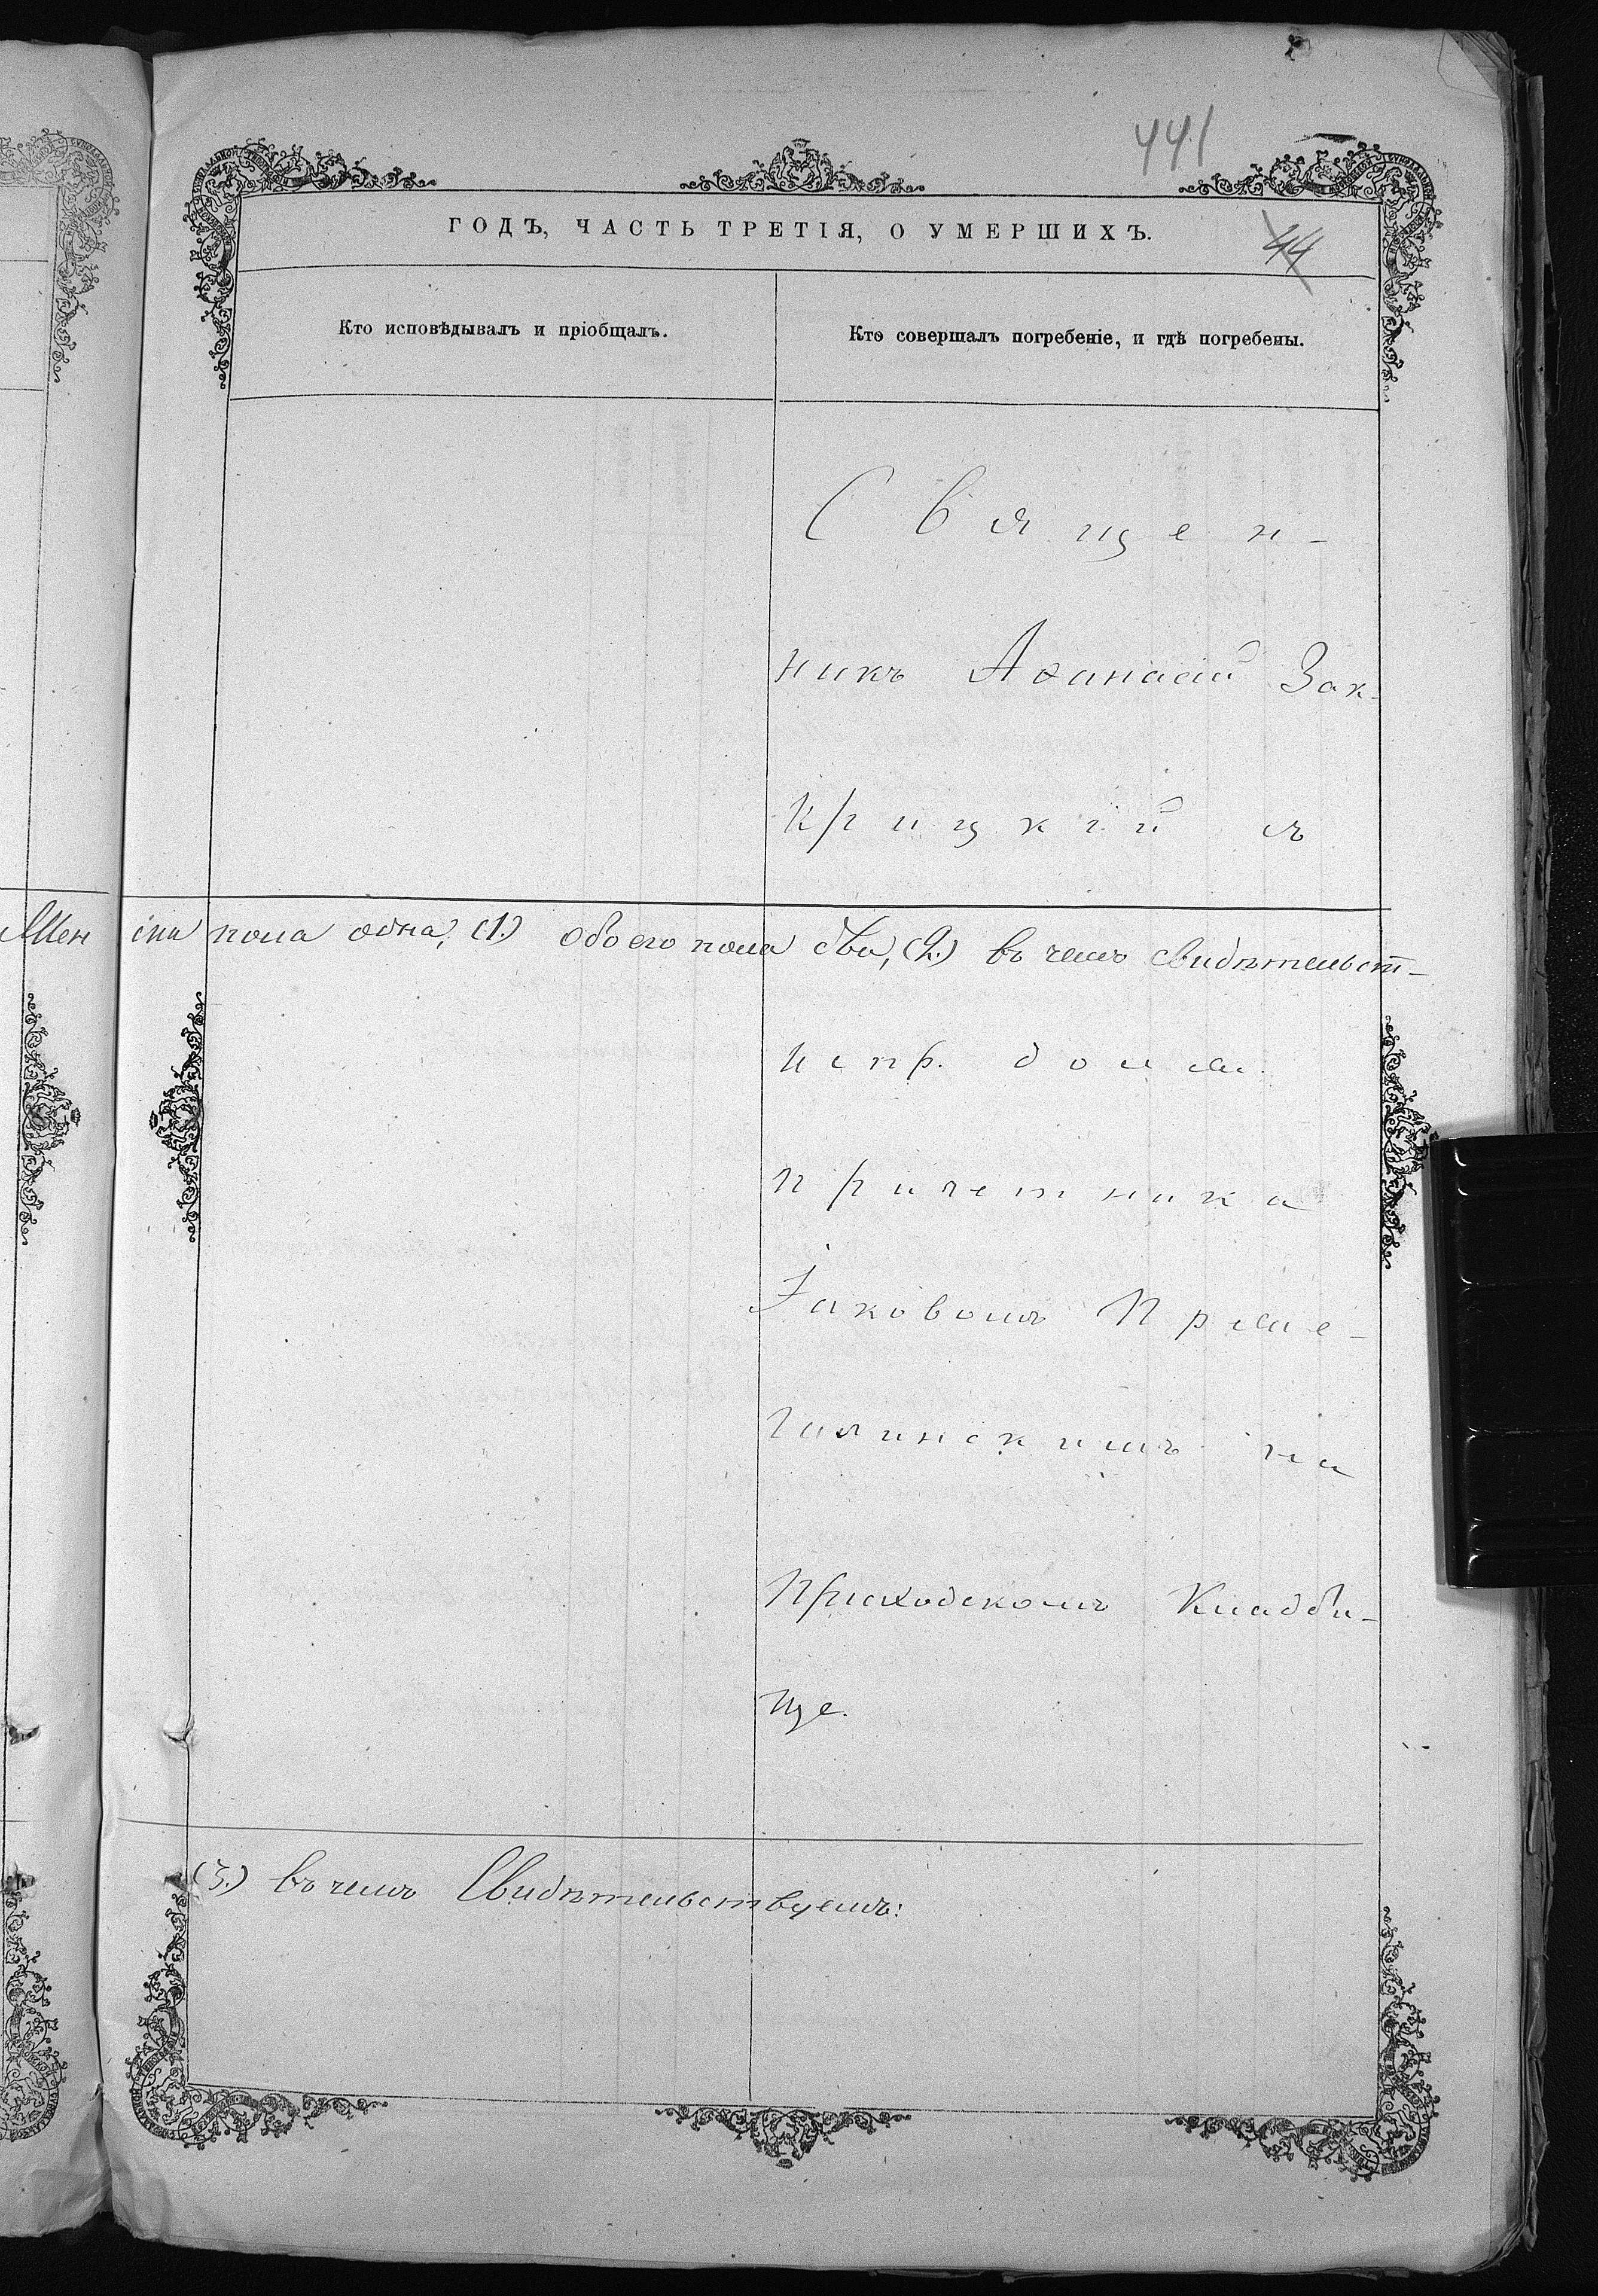 441
ГОДЪ, ЧАСТЬ ТРЕТІЯ, О УМЕРШИХЪ.
44
Кто исповѣдывалъ и пріобщалъ.
Кто совершалъ погребеніе, и гдѣ погребены.
Священ-
никъ Аѳанасій Зак-
крицкій съ
Жен ска пола одна, (1.) обоего пола два, (2.) въ чемъ свидѣтельст-
испр. долж.
причетника
Іаковомъ Прже-
галинскимъ на
Приходскомъ Кладби-
ще.
(3.) въ чемъ Свидѣтельствуемъ: